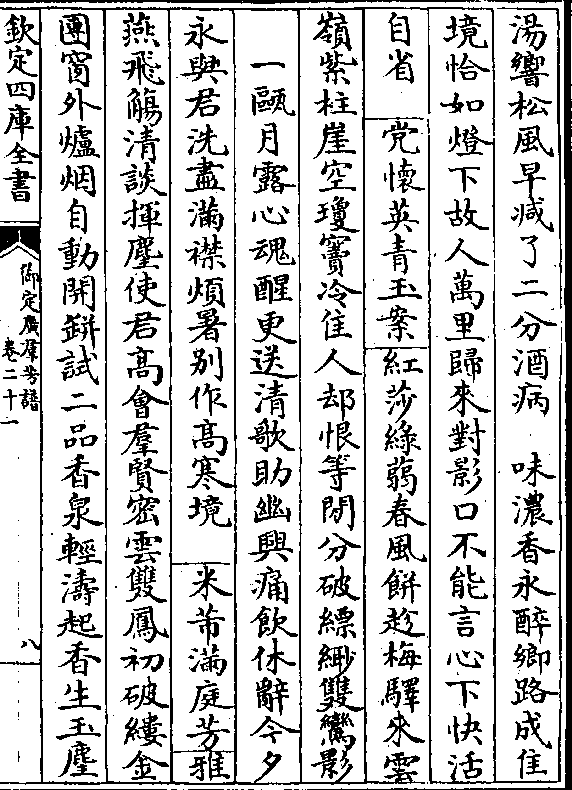 湯響松風早減了二分酒病　味濃香永醉鄉路成佳
境恰如燈下故人萬里歸來對影口不能言心下快活
自省　党懷英青玉案　紅莎綠蒻春風餅趁梅驛來雲
嶺紫柱崖空瓊竇冷佳人却恨等閒分破縹緲雙鸞影
一甌月露心魂醒更送清歌助幽興痛飲休辭今夕
永與君洗盡滿襟煩暑别作高寒境　米芾滿庭芳　雅
燕飛觴清談揮麈使君高會羣賢密雲雙鳳初破縷金
團窗外爐烟自動開缾試二品香泉輕濤起香生玉麈
欽定四庫全書
御定廣羣芳譜
卷二十一
八